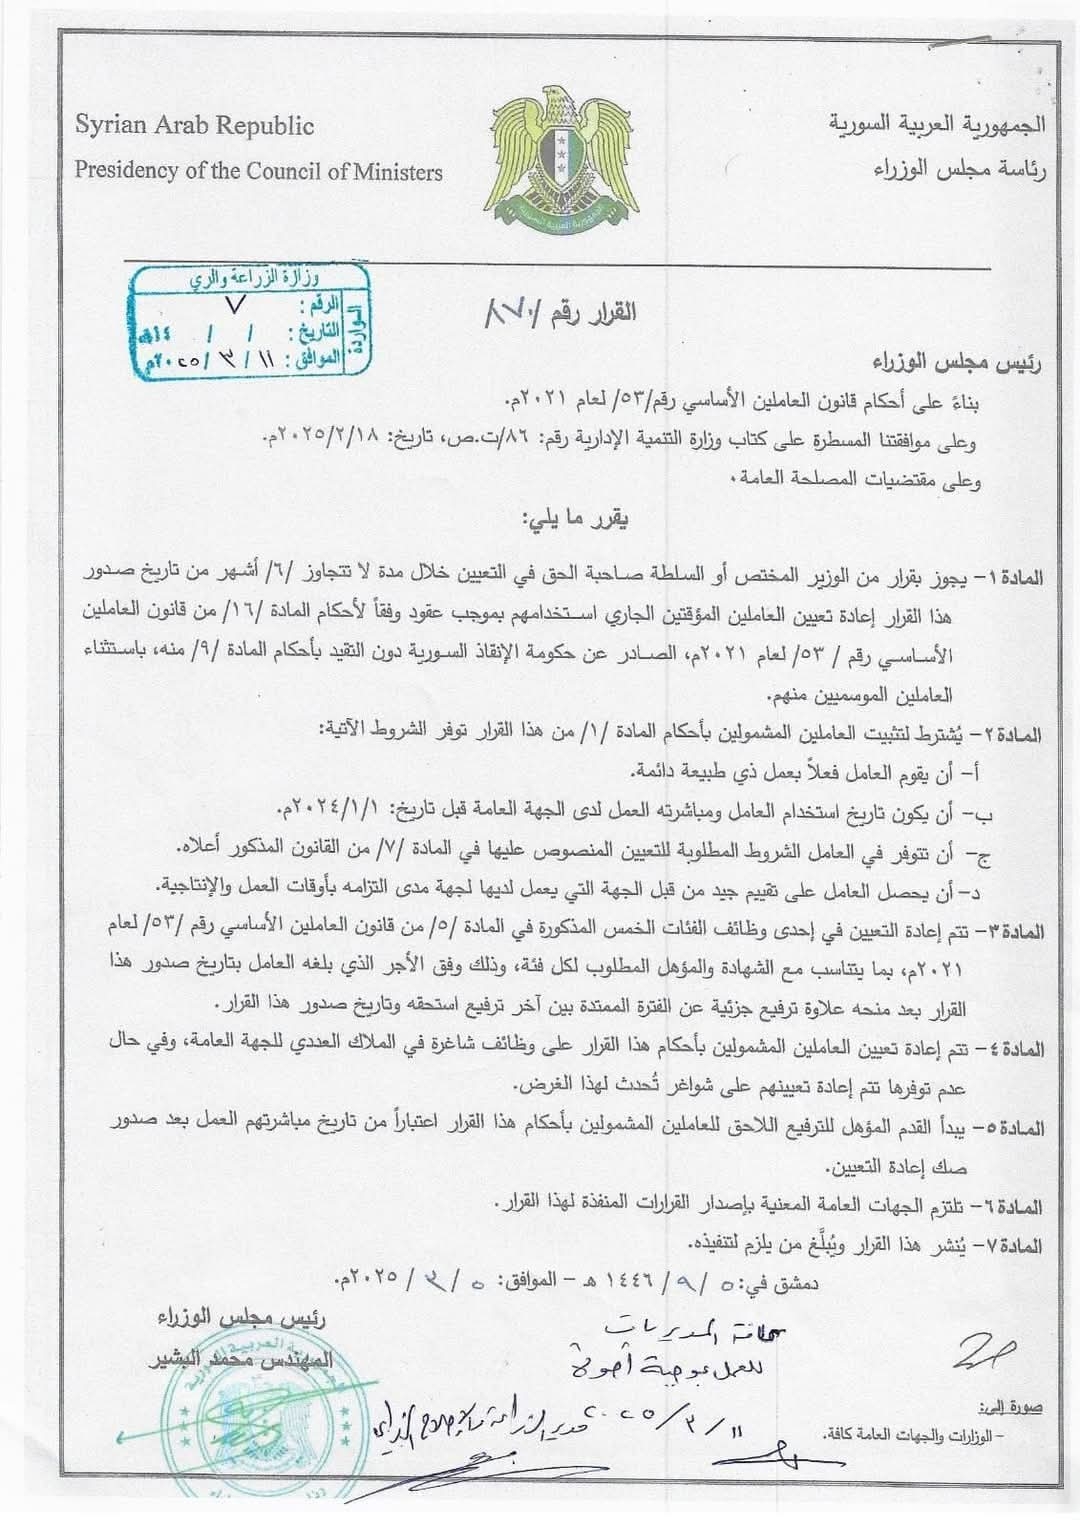 Syrian Arab Republic
Presidency of the Council of Ministers
الجمهورية العربية السورية
رئاسة مجلس الوزراء
الجمهورية العربية السورية
وزارة الزراعة والري
الواردة
الرقم: ٧
التاريخ: / / ١٤هـ
الموافق: ١١/ ٣ / ٢٠٢٥م
القرار رقم /٨٧٠/
رئيس مجلس الوزراء
بناءً على أحكام قانون العاملين الأساسي رقم/٥٣/ لعام ٢٠٢١م.
وعلى موافقتنا المسطرة على كتاب وزارة التنمية الإدارية رقم: ٨٦/ت.ص، تاريخ: ٢٠٢٥/٢/١٨م.
وعلى مقتضيات المصلحة العامة.
يقرر ما يلي:
المادة ١- يجوز بقرار من الوزير المختص أو السلطة صاحبة الحق في التعيين خلال مدة لا تتجاوز /٦/ أشهر من تاريخ صدور
هذا القرار إعادة تعيين العاملين المؤقتين الجاري استخدامهم بموجب عقود وفقاً لأحكام المادة /١٦/ من قانون العاملين
الأساسي رقم / ٥٣/ لعام ٢٠٢١م، الصادر عن حكومة الإنقاذ السورية دون التقيد بأحكام المادة /٩/ منه، باستثناء
العاملين الموسميين منهم.
المادة ٢- يُشترط لتثبيت العاملين المشمولين بأحكام المادة /١/ من هذا القرار توفر الشروط الآتية:
أ- أن يقوم العامل فعلاً بعمل ذي طبيعة دائمة.
ب- أن يكون تاريخ استخدام العامل ومباشرته العمل لدى الجهة العامة قبل تاريخ: ٢٠٢٤/١/١م.
ج- أن تتوفر في العامل الشروط المطلوبة للتعيين المنصوص عليها في المادة /٧/ من القانون المذكور أعلاه.
د- أن يحصل العامل على تقييم جيد من قبل الجهة التي يعمل لديها لجهة مدى التزامه بأوقات العمل والإنتاجية.
المادة ٣- تتم إعادة التعيين في إحدى وظائف الفئات الخمس المذكورة في المادة /٥/ من قانون العاملين الأساسي رقم /٥٣/ لعام
٢٠٢١م، بما يتناسب مع الشهادة والمؤهل المطلوب لكل فئة، وذلك وفق الأجر الذي بلغه العامل بتاريخ صدور هذا
القرار بعد منحه علاوة ترفيع جزئية عن الفترة الممتدة بين آخر ترفيع استحقه وتاريخ صدور هذا القرار.
المادة ٤- تتم إعادة تعيين العاملين المشمولين بأحكام هذا القرار على وظائف شاغرة في الملاك العددي للجهة العامة، وفي حال
عدم توفرها تتم إعادة تعيينهم على شواغر تُحدث لهذا الغرض.
المادة ٥- يبدأ القدم المؤهل للترفيع اللاحق للعاملين المشمولين بأحكام هذا القرار اعتباراً من تاريخ مباشرتهم العمل بعد صدور
صك إعادة التعيين.
المادة ٦- تلتزم الجهات العامة المعنية بإصدار القرارات المنفذة لهذا القرار.
المادة ٧- يُنشر هذا القرار ويُبلَّغ من يلزم لتنفيذه.
دمشق في: ٥ / ٩ / ١٤٤٦ هـ - الموافق: ٥ / ٣ / ٢٠٢٥م.
رئيس مجلس الوزراء
المهندس محمد البشير
كافة المديريات
للعمل بموجبه أصولاً
١١ / ٣ / ٢٠٢٥
مدير الزراعة والإصلاح الزراعي
صورة إلى:
- الوزارات والجهات العامة كافة.